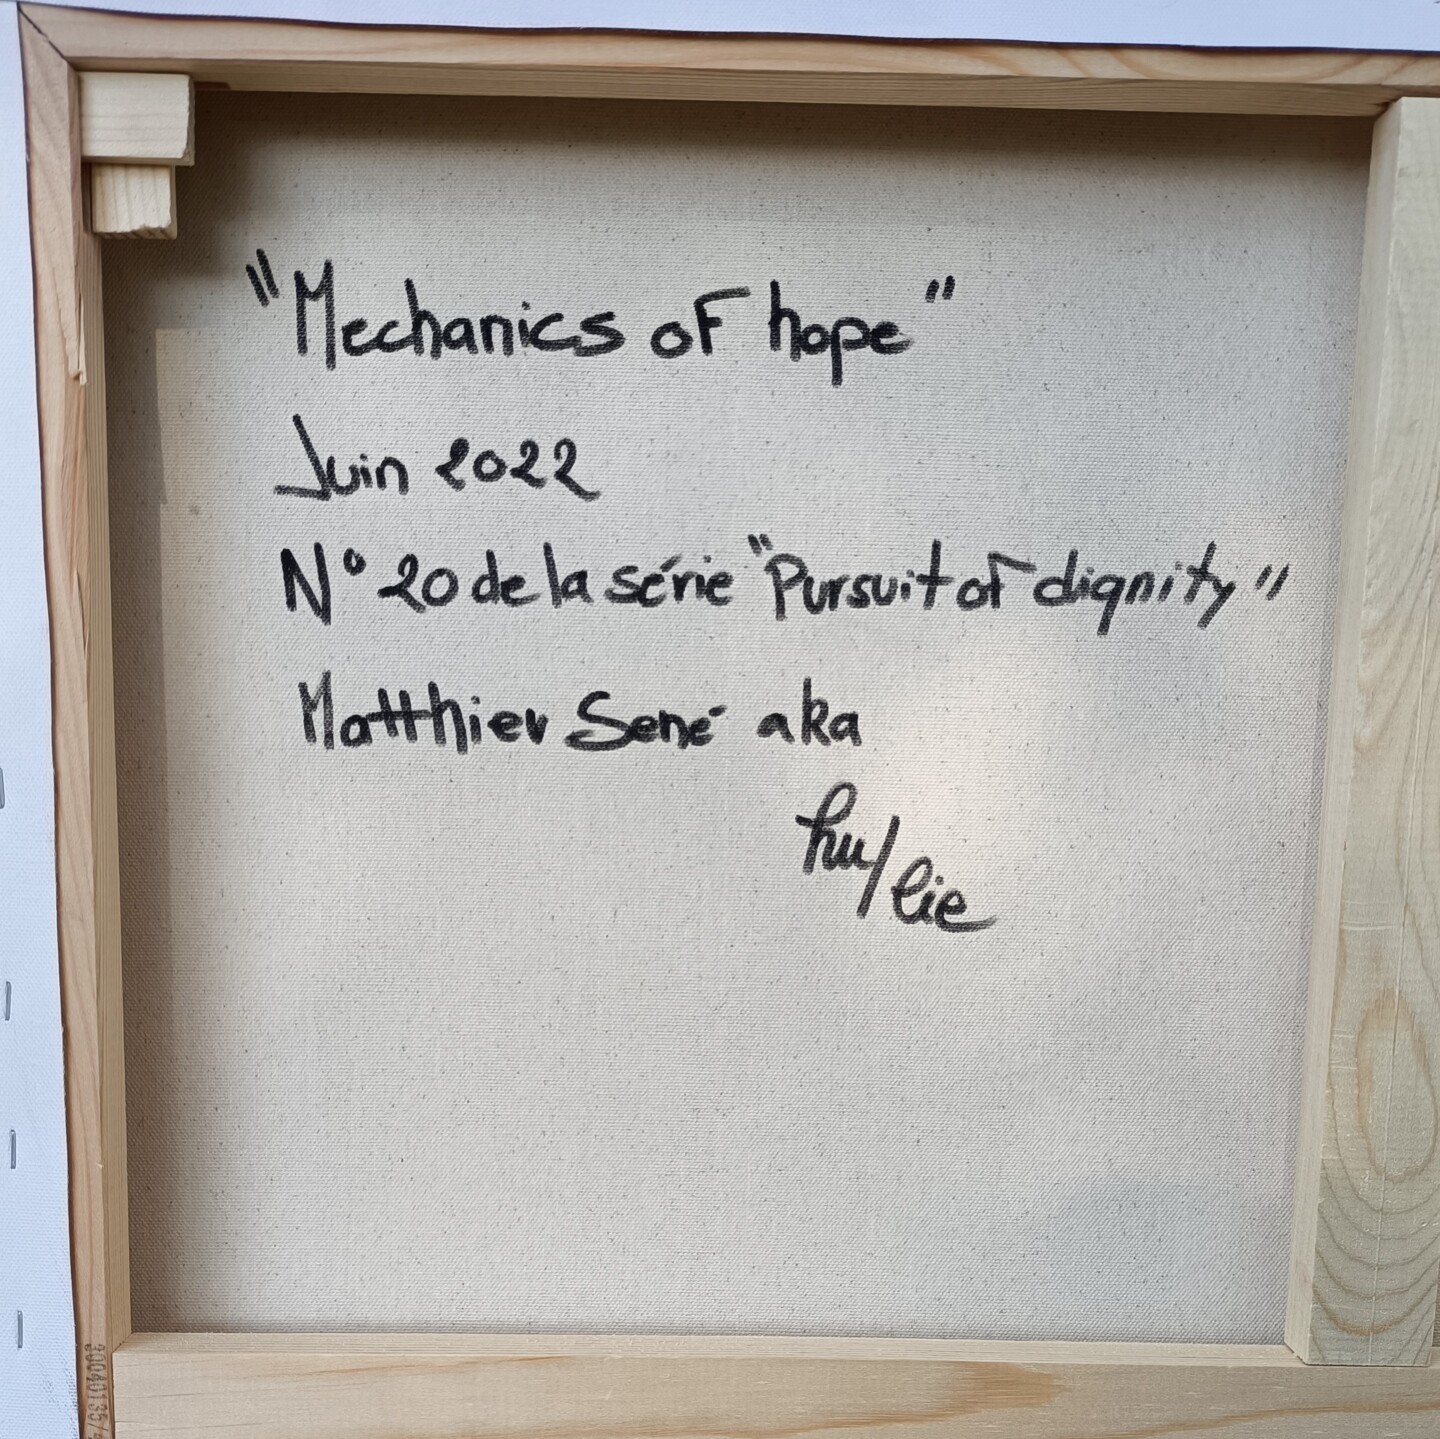 "Mechanics of hope"
Juin 2022
N° 20 de la série "Pursuit of dignity"
Matthieu Sené aka
hu/lie